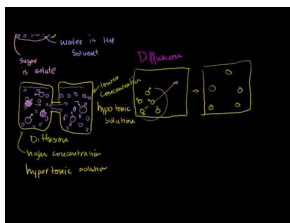 water is the
solvent
sugar
is solute
Diffusion
lower
concentration
hypotonic
solution
Diffusion
higher concentration
hypertonic solution